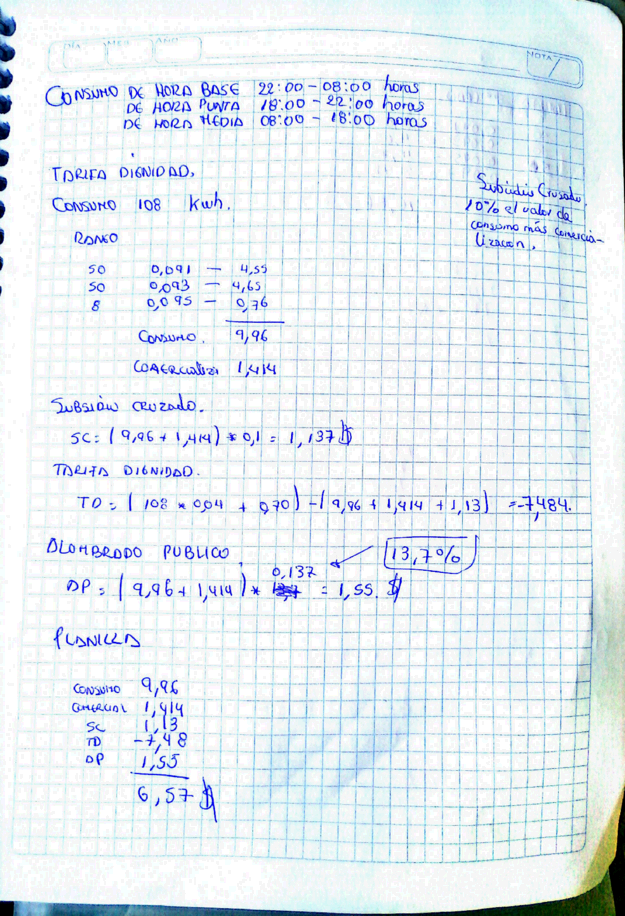 DIA MES AÑO
NOTA
CONSUMO DE HORA BASE 22:00 - 08:00 horas
DE HORA PUNTA 18:00 - 22:00 horas
DE HORA MEDIA 08:00 - 18:00 horas
TARIFA DIGNIDAD.
CONSUMO 108 Kwh.
Subsidio Cruzado.
10% el valor de
consumo más comercia-
lizacon.
RANGO
50 0,091 - 4,55
50 0,093 - 4,65
8 0,095 - 0,76
CONSUMO. 9,96
1,414
SUBSIDIO CRUZADO.
SC = (9,96 + 1,414) * 0,1 = 1,137 $
TARIFA DIGNIDAD.
TD = (108 * 0,04 + 0,70) - (9,96 + 1,414 + 1,13) = -7,484.
ALOMBRADO PUBLICO
13,7%
0,137
AP = (9,96 + 1,414) * = 1,55. $
PLANILLA
CONSUMO 9,96
COMERCIAL 1,414
SC 1,13
TD -7,48
AP 1,55
6,57 $